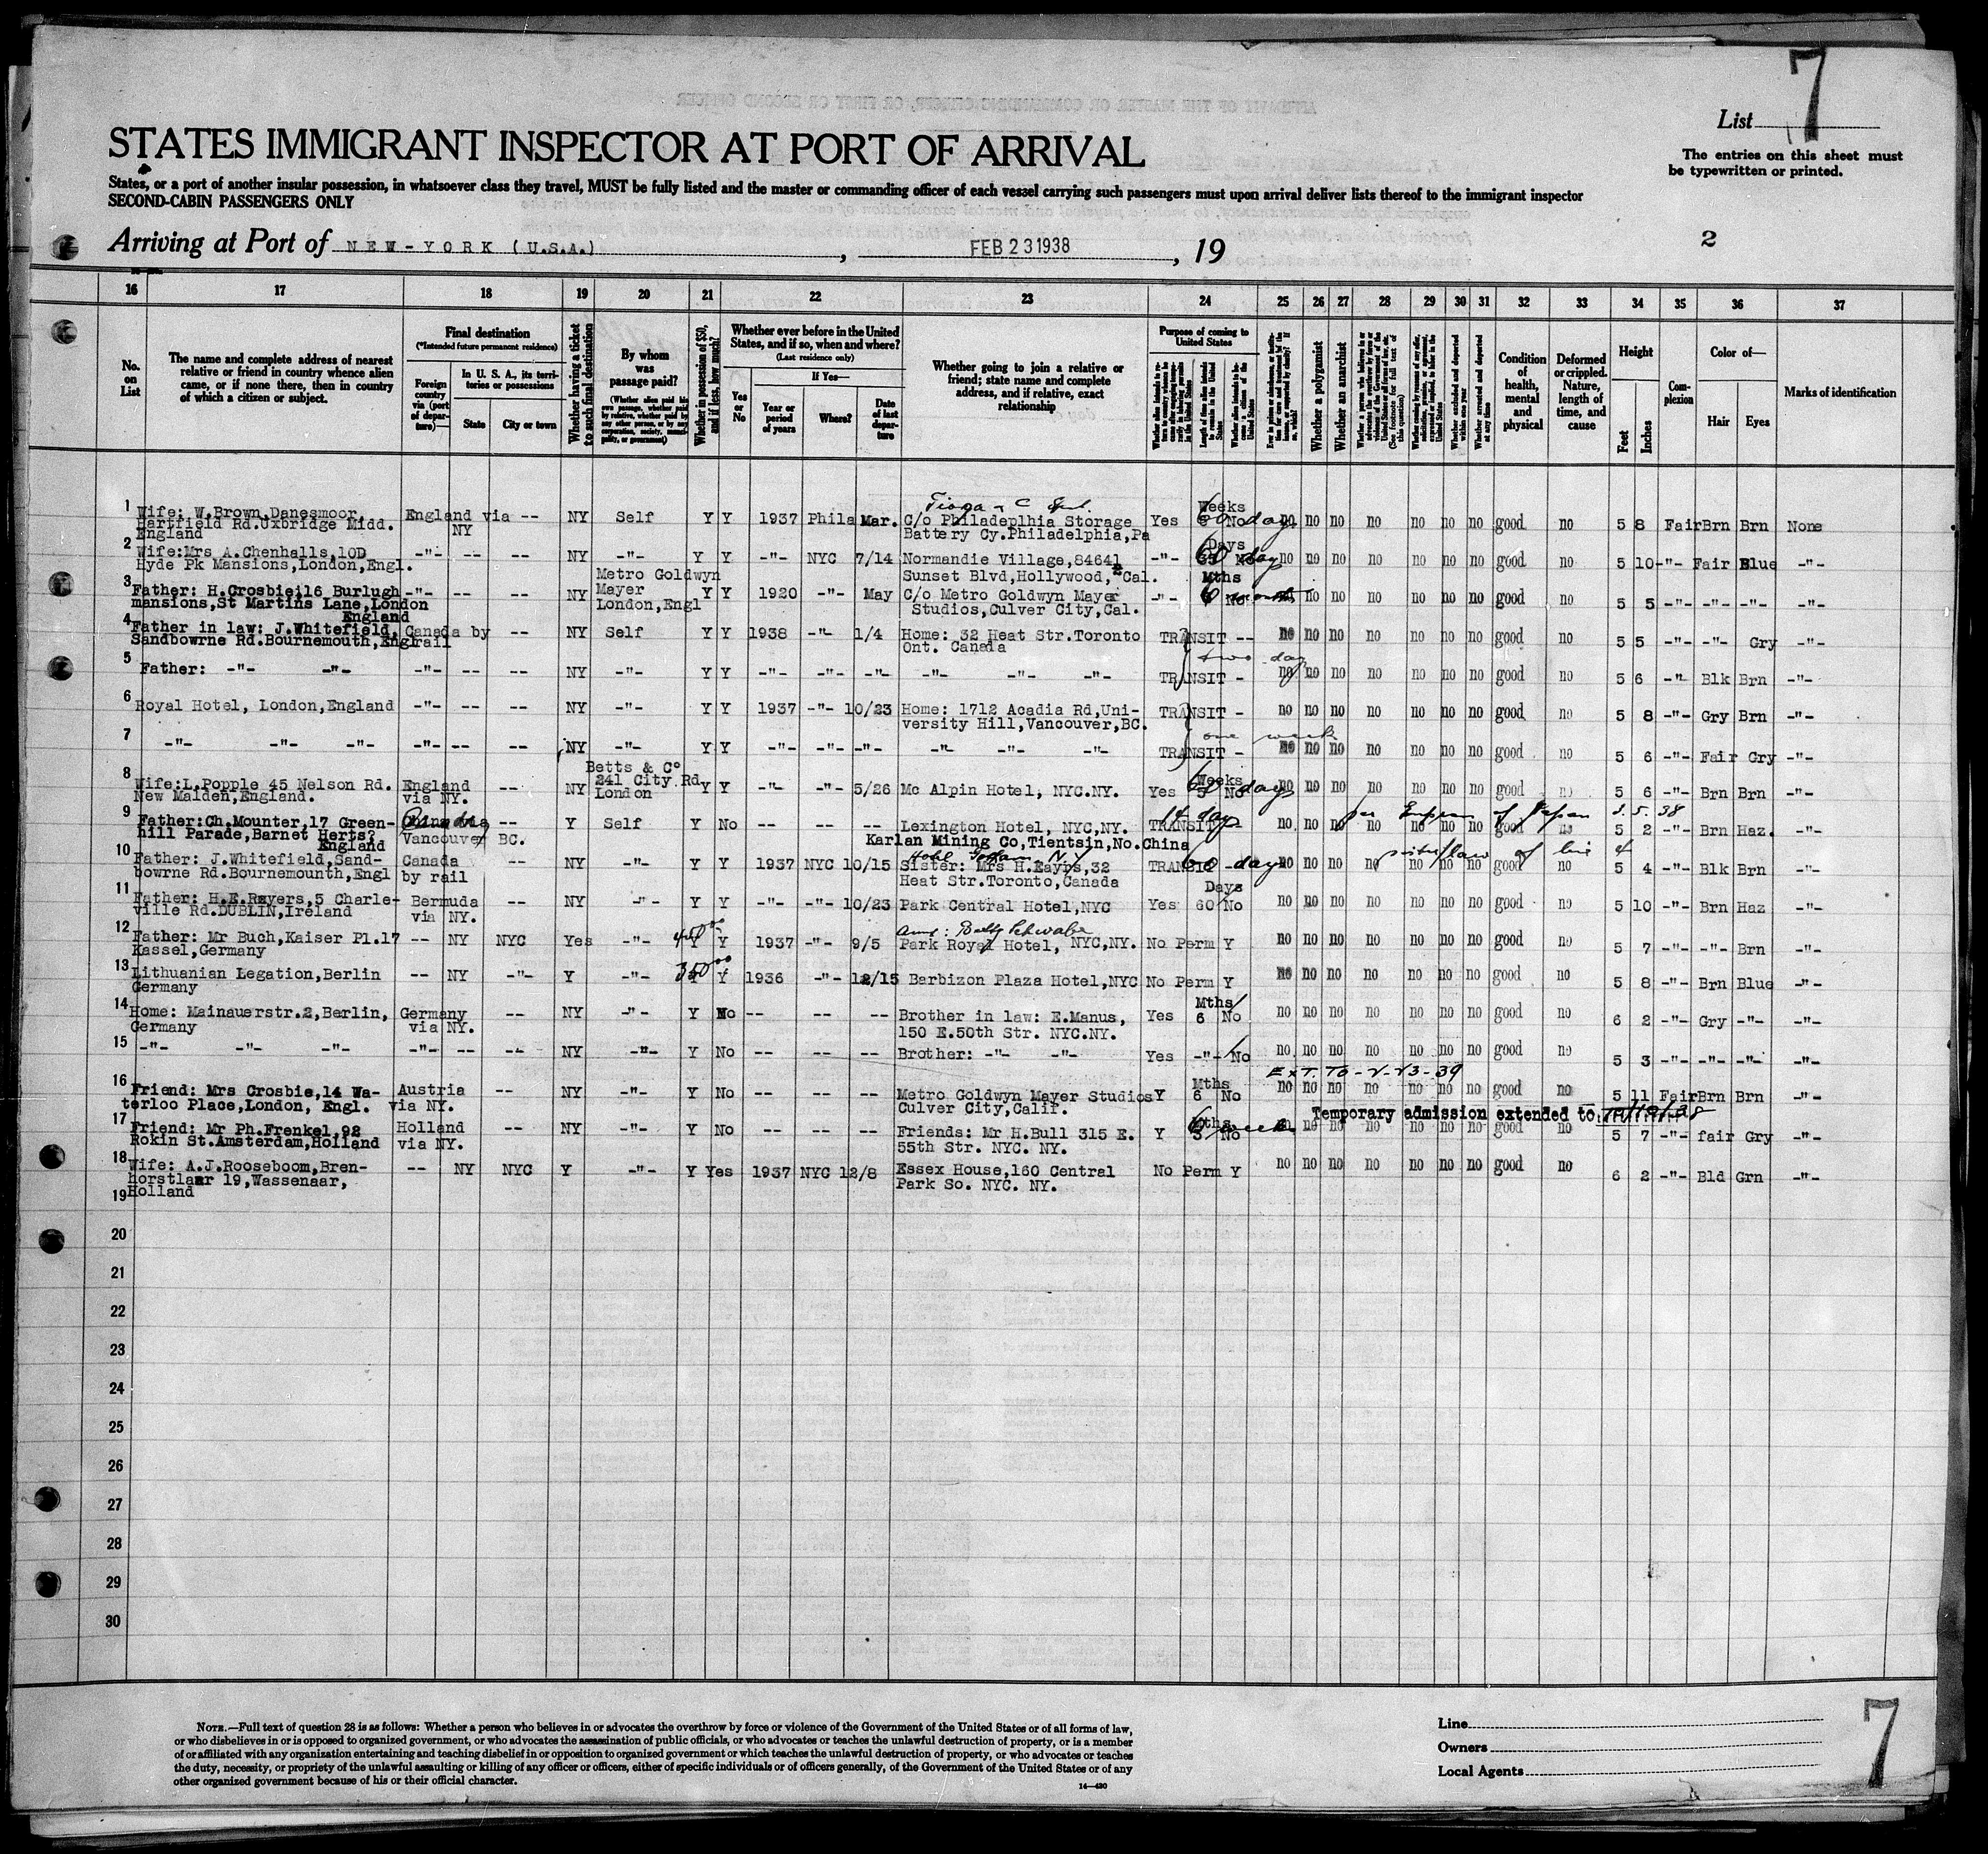 7
List
STATES IMMIGRANT INSPECTOR AT PORT OF ARRIVAL
The entries on this sheet must
be typewritten or printed.
States, or a port of another insular possession, in whatsoever class they travel, MUST be fully listed and the master or commanding officer of each vessel carrying such passengers must upon arrival deliver lists thereof to the immigrant inspector
SECOND-CABIN PASSENGERS ONLY
Arriving at Port of NEW-YORK (U.S.A.), FEB 23 1938, 19
2
16 17 18 19 20 21 22 23 24 25 26 27 28 29 30 31 32 33 34 35 36 37
No. on List
The name and complete address of nearest relative or friend in country whence alien came, or if none there, then in country of which a citizen or subject.
Final destination
(*Intended future permanent residence)
Foreign country via (port of departure)
In U. S. A., its territories or possessions
State
City or town
Whether having a ticket to such final destination
By whom was passage paid?
(Whether alien paid his own passage, whether paid by relative, whether paid by any other person, or by any corporation, society, municipality, or government)
Whether in possession of $50, and if less, how much?
Whether ever before in the United States, and if so, when and where?
(Last residence only)
Yes or No
If Yes—
Year or period of years
Where?
Date of last departure
Whether going to join a relative or friend; state name and complete address, and if relative, exact relationship
Purpose of coming to United States
Length of time alien intends to remain in the United States
Whether alien intends to become a citizen of the United States
Whether a polygamist
Whether an anarchist
Condition of health, mental and physical
Deformed or crippled. Nature, length of time, and cause
Height
Feet
Inches
Complexion
Color of—
Hair
Eyes
Marks of identification
1 Wife: W.Brown,Danesmoor, England via -- NY Self Y Y 1937 Phila Mar. C/o Philadeplhia Storage Yes Weeks No 60 days no no no no no no no good no 5 8 Fair Brn Brn None
Hartfield Rd.Uxbridge Midd. NY Battery Cy.Philadelphia,Pa
England
2 Wife:Mrs A.Chenhalls,10D -"- -- -- NY -"- Y Y -"- NYC 7/14 Normandie Village,84641 -"- Days 60 No days no no no no no no no good no 5 10 -"- Fair Blue -"-
Hyde Pk Mansions,London,Engl. Sunset Blvd,Hollywood, Cal.
3 Father: H.Crosbie,16 Burlugh -"- -- -- NY Metro Goldwyn Mayer London,Engl Y Y 1920 -"- May C/o Metro Goldwyn Mayer -"- Mths 6 No months no no no no no no good no 5 5 -"- -"- -"- -"-
mansions,St Martins Lane,London Studios,Culver City,Cal.
England
4 Father in law: J.Whitefield, Canada by -- NY Self Y Y 1938 -"- 1/4 Home: 32 Heat Str.Toronto TRANSIT -- no no no no no no no good no 5 5 -"- -"- Gry -"-
Sandbowne Rd.Bournemouth,Engl rail Ont. Canada
two day
5 Father: -"- -"- -"- -- -- NY -"- Y Y -"- -"- -"- -"- -"- -"- TRANSIT - no no no no no no no good no 5 6 -"- Blk Brn -"-
6 Royal Hotel, London,England -"- -- -- NY -"- Y Y 1937 -"- 10/23 Home: 1712 Acadia Rd,Uni- TRANSIT - no no no no no no no good no 5 8 -"- Gry Brn -"-
versity Hill,Vancouver,BC.
one week
7 -"- -"- -"- -"- -- -- NY -"- Y Y -"- -"- -"- -"- -"- -"- TRANSIT - no no no no no no no good no 5 6 -"- Fair Gry -"-
8 Wife:L.Popple 45 Nelson Rd. England -- NY Betts & Co 241 City Rd London Y Y -"- -"- 5/26 Mc Alpin Hotel, NYC.NY. Yes Weeks 5 No 60 days no no no no no no no good no 5 6 -"- Brn Brn -"-
New Malden,England. via NY.
9 Father:Ch.Mounter,17 Green- Y Self Y No -- -- -- Lexington Hotel, NYC,NY. TRANSIT - 14 days no no no no no no no good no 5 2 -"- Brn Haz. -"-
per Empress of Japan 3.5.38
hill Parade,Barnet Herts? Vancouver BC. Karlan Mining Co,Tientsin,No.China
England
10 Father: J.Whitefield,Sand- Canada -- NY -"- Y Y 1937 NYC 10/15 Sister: Mrs H.Eayrs,32 TRANSIT 60 days no no no no no no no good no 5 4 -"- Blk Brn -"-
sister/law of line 4
bowrne Rd.Bournemounth,Engl by rail Heat Str.Toronto,Canada
11 Father: H.E.Rayers,5 Charle- Bermuda -- NY -"- Y Y -"- -"- 10/23 Park Central Hotel,NYC Yes Days 60 No no no no no no no no good no 5 10 -"- Brn Haz -"-
ville Rd.DUBLIN,Ireland via NY.
Betty Schwabe
12 Father: Mr Buch,Kaiser Pl.17 -- NY NYC Yes -"- 400 Y 1937 -"- 9/5 Park Royal Hotel, NYC,NY. No Perm Y no no no no no no no good no 5 7 -"- -"- Brn -"-
Kassel,Germany
13 Lithuanian Legation,Berlin -- NY -"- Y -"- 350 Y 1936 -"- 12/15 Barbizon Plaza Hotel,NYC No Perm Y no no no no no no no good no 5 8 -"- Brn Blue -"-
Germany
14 Home: Mainauerstr.2,Berlin, Germany -- NY -"- Y No -- -- -- Brother in law: E.Manus, Yes Mths 6 No no no no no no no no good no 6 2 -"- Gry -"- -"-
Germany via NY. 150 E.50th Str. NYC.NY.
15 -"- -"- -"- -"- -- -- NY -"- Y No -- -- -- Brother: -"- -"- Yes -"- No no no no no no no no good no 5 3 -"- -"- -"- -"-
EXT. TO - V-V3-39
16 Friend: Mrs Crosbie,14 Wa- Austria -- NY -"- Y No -- -- -- Metro Goldwyn Mayer Studios Y Mths 6 No no no no no no no no good no 5 11 Fair Brn Brn -"-
terloo Place,London, Engl. via NY. Culver City,Calif.
Temporary admission extended to:
17 Friend: Mr Ph.Frenkel,92 Holland -- NY -"- Y No -- -- -- Friends: Mr H.Bull 315 E. Y Mths 3 No 6 weeks no no no no no no good no 5 7 -"- fair Gry -"-
Rokin St.Amsterdam,Holland via NY. 55th Str. NYC. NY.
18 Wife: A.J.Rooseboom,Bren- -- NY NYC Y -"- Y Yes 1937 NYC 12/8 Essex House,160 Central No Perm Y no no no no no no no good no 6 2 -"- Bld Grn -"-
horstlaar 19,Wassenaar, Park So. NYC. NY.
19 Holland
20
21
22
23
24
25
26
27
28
29
30
NOTE.—Full text of question 28 is as follows: Whether a person who believes in or advocates the overthrow by force or violence of the Government of the United States or of all forms of law,
or who disbelieves in or is opposed to organized government, or who advocates the assassination of public officials, or who advocates or teaches the unlawful destruction of property, or is a member
of or affiliated with any organization entertaining and teaching disbelief in or opposition to organized government or which teaches the unlawful destruction of property, or who advocates or teaches
the duty, necessity, or propriety of the unlawful assaulting or killing of any officer or officers, either of specific individuals or of officers generally, of the Government of the United States or of any
other organized government because of his or their official character.
14—420
Line
Owners
Local Agents
7